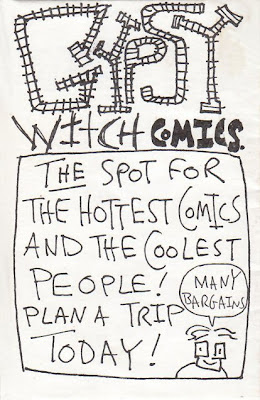 GYPSY
WITCH COMICS.
THE SPOT FOR
THE HOTTEST COMICS
AND THE COOLEST
PEOPLE!
PLAN A TRIP
TODAY!
MANY
BARGAINS